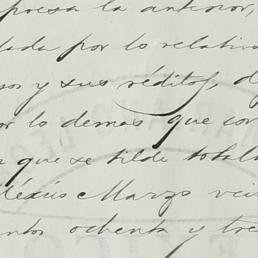 presa la anterior,
lada por lo relativo
sor y sus réditos, d
or lo demas que cor
que se tilde total
Méxis Marzo vei
ntos ochenta y tre